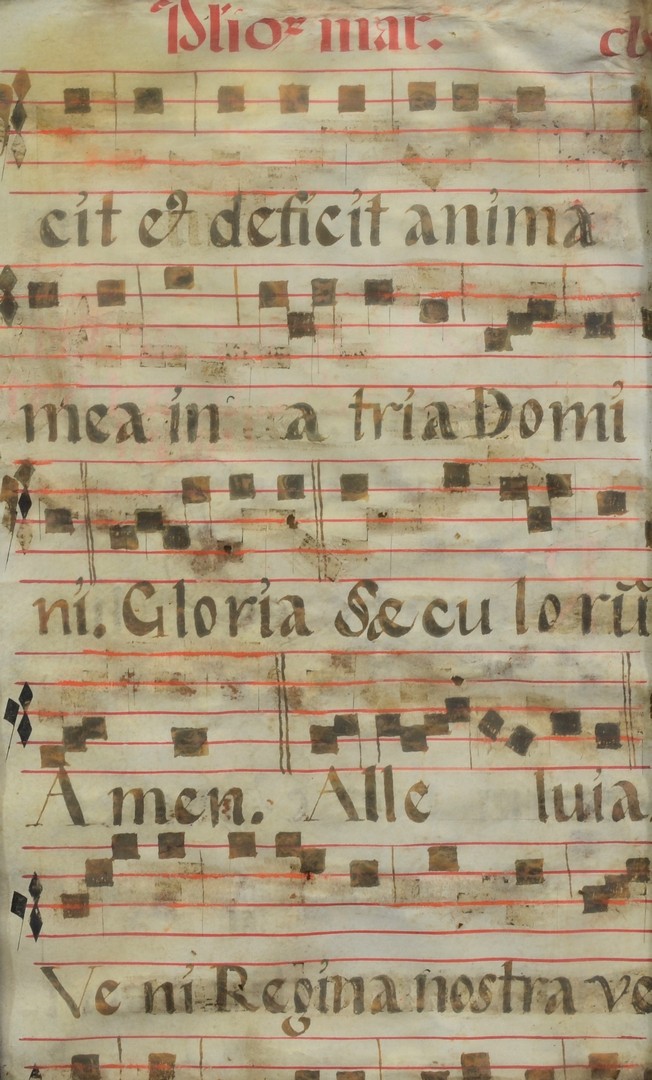 mar.
cit & deficit anima
mea in a tria Domi
ni. Gloria Sæ cu lo rũ
A men. Alle luia.
Ve ni Regina nostra ve